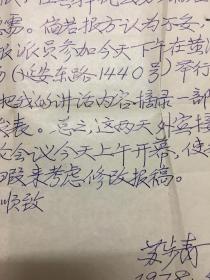 德雾。倘若报方认为不妥,
报派员参加今天下午在黄
(延安东路1440号)举行
把我的讲话内容摘录一部
发表。总之,这两天外宾接
会议今天上午开幕,使
暇来考虑修改报稿。
顺致
苏步青
1978.